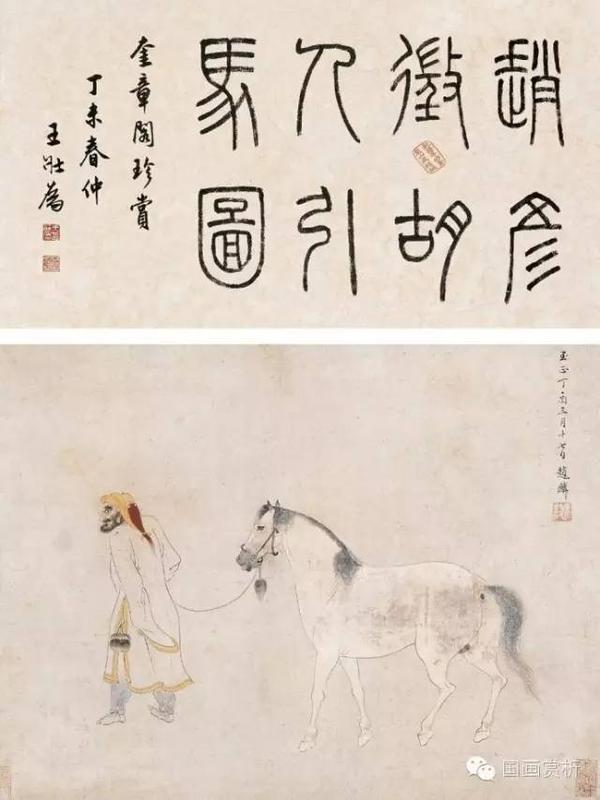 趙彥
徵胡
人引
馬圖
奎章閣珍賞
丁未春仲
王壯為
至正丁酉三月十七日趙麟
国画赏析